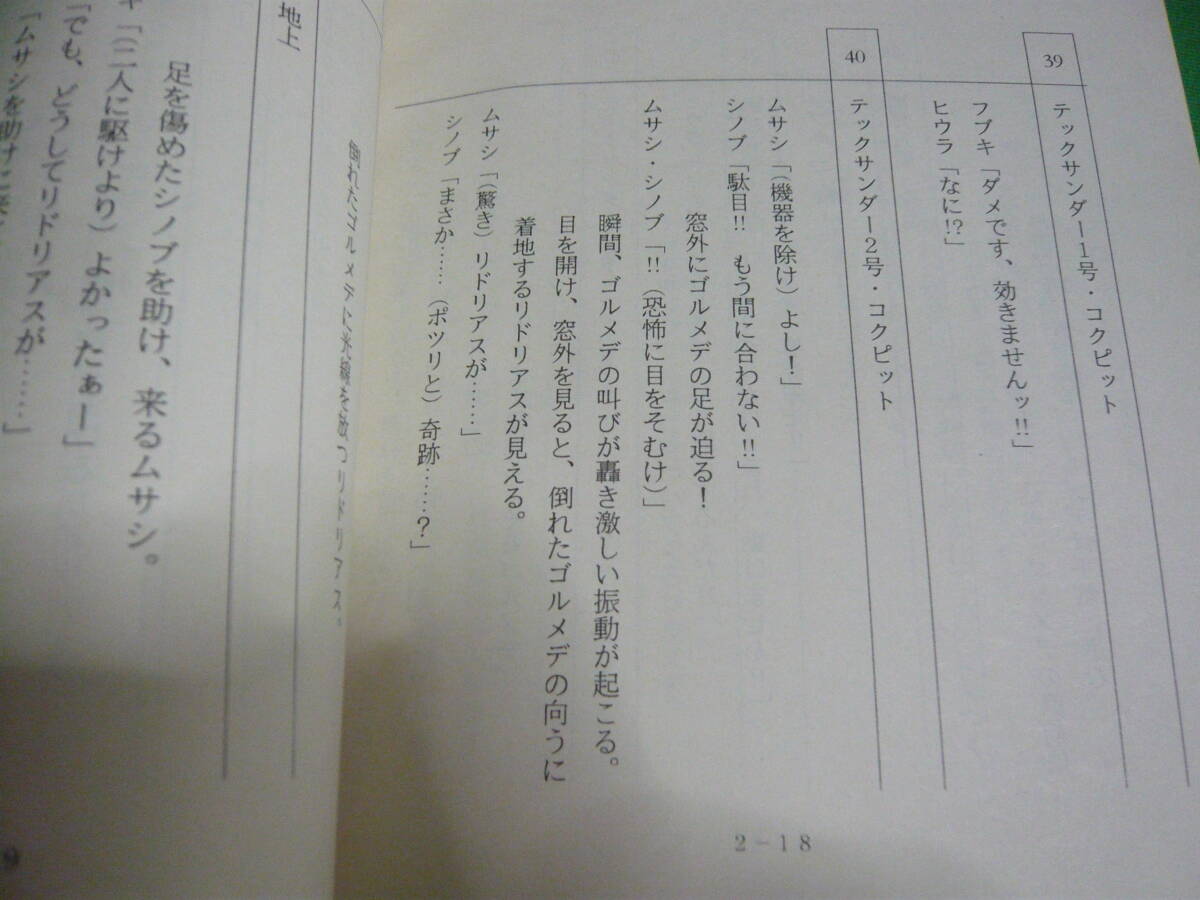 39
テックサンダー1号・コクピット
フブキ「ダメです、効きませんッ!!」
ヒウラ「なに!?」
40
テックサンダー2号・コクピット
ムサシ「(機器を除け)よし!」
シノブ「駄目!! もう間に合わない!!」
窓外にゴルメデの足が迫る!
ムサシ・シノブ「!!(恐怖に目をそむけ)」
瞬間、ゴルメデの叫びが轟き激しい振動が起こる。
目を開け、窓外を見ると、倒れたゴルメデの向うに
着地するリドリアスが見える。
ムサシ「(驚き)リドリアスが……」
シノブ「まさか……(ポツリと)奇跡……?」
2-18
倒れたゴルメデに光線を放つリドリアス。
地上
足を傷めたシノブを助け、来るムサシ。
キ「(二人に駆けより)よかったぁー」
「でも、どうしてリドリアスが……」
「ムサシを助けに来
9